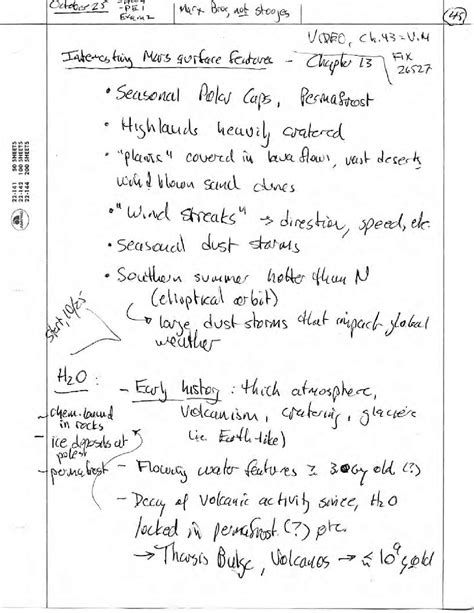 October 25
Exam 2
Marx Bros, not stooges
45
VIDEO, Ch. 43 = V.M
FIX
26527
Interesting Mars surface features - Chapter 13
• Seasonal Polar Caps, Permafrost
• Highlands heavily cratered
• "plains" covered in lava flows, vast deserts
wind blown sand dunes
• "Wind Streaks" → direction, speed, etc.
• Seasonal dust storms
• Southern summer hotter than N
(elliptical orbit)
↳ large dust storms that impact global
weather
Start, 10/25
22-141 50 SHEETS
22-142 100 SHEETS
22-144 200 SHEETS
H2O :
- chem. bound
in rocks
- ice deposits at
poles
- permafrost
- Early history : thick atmosphere,
volcanism, cratering, glaciers
(i.e. Earth-like)
- Flowing water features ≥ 3 Gy old (?)
- Decay of volcanic activity since, H2O
locked in permafrost (?) etc.
→ Tharsis Bulge, Volcanos → ≤ 10^9 y old